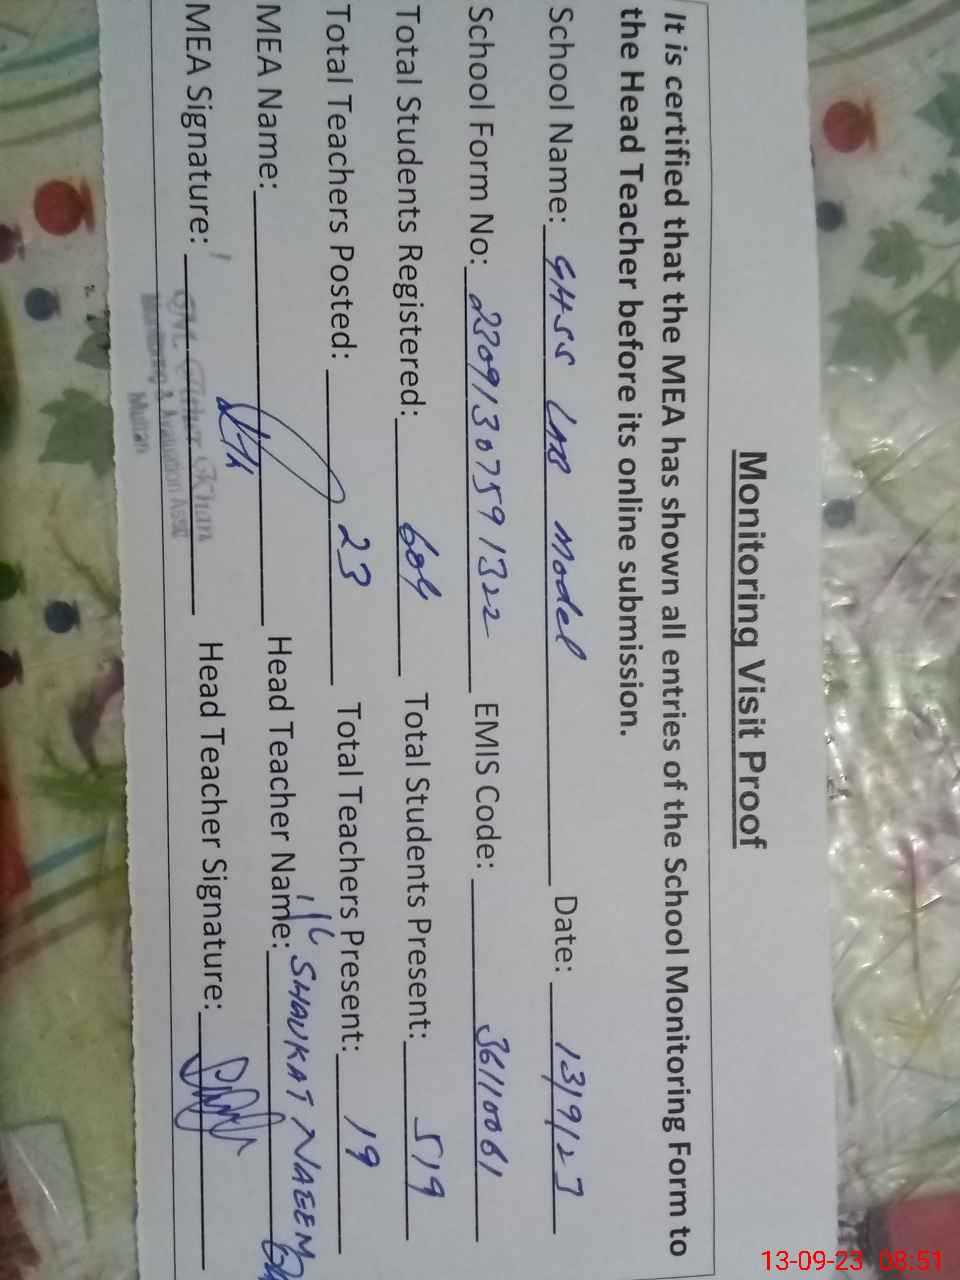 Monitoring Visit Proof
It is certified that the MEA has shown all entries of the School Monitoring Form to
the Head Teacher before its online submission.
School Name: GHSS LAB Model Date: 13/9/23
School Form No: 23091307591322 EMIS Code: 36110061
Total Students Registered: 604 Total Students Present: 519
Total Teachers Posted: 23 Total Teachers Present: 19
MEA Name: Head Teacher Name: SHAUKAT NAEEM
MEA Signature: Head Teacher Signature:
Khan
Monitoring & Evaluation Asstt
Multan
13-09-23 08:51